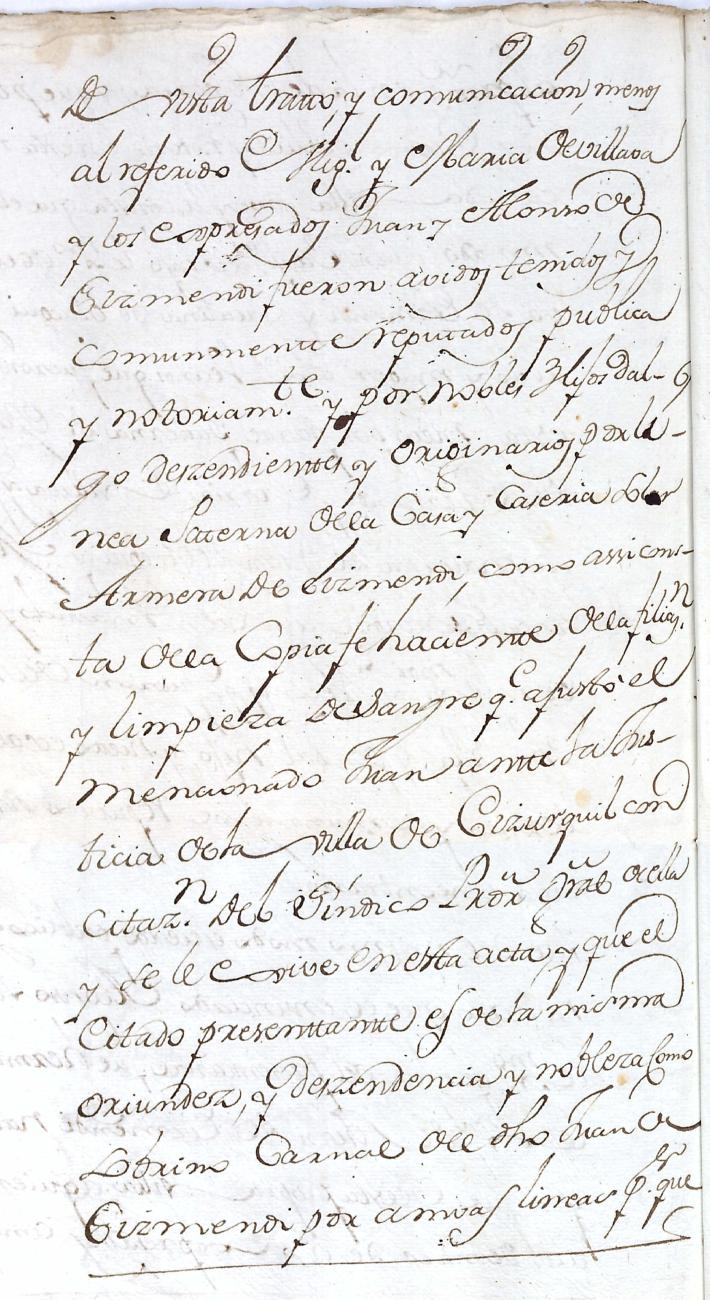 de vista trato, y comunicacion, menos
al referido Mig.l y Maria de villava
y los expresados Juan y Alonso de
Eizmendi fueron avidos tenidos y
comunmentte reputados publica
y notoriam.te y por nobles Hijos dal-
go deszendientes y originarios por li-
nea Paterna de la Casa y Caseria solar
Armera de Eizmendi, como assi cons-
ta de la Copia fehacientte de la filiaz.n
y limpieza de sangre q.e ajustó el
mencionado Juan antte la Jus-
ticia de la villa de Cizurquil con
Citaz.n del Sindico Prõr Grãl de ella
y se le exive en esta acta, y que el
Citado presenttantte es de la misma
oriundez, y deszendencia y nobleza como
sobrino Carnal de el dho Juan de
Eizmendi por amvas lineas p.r que